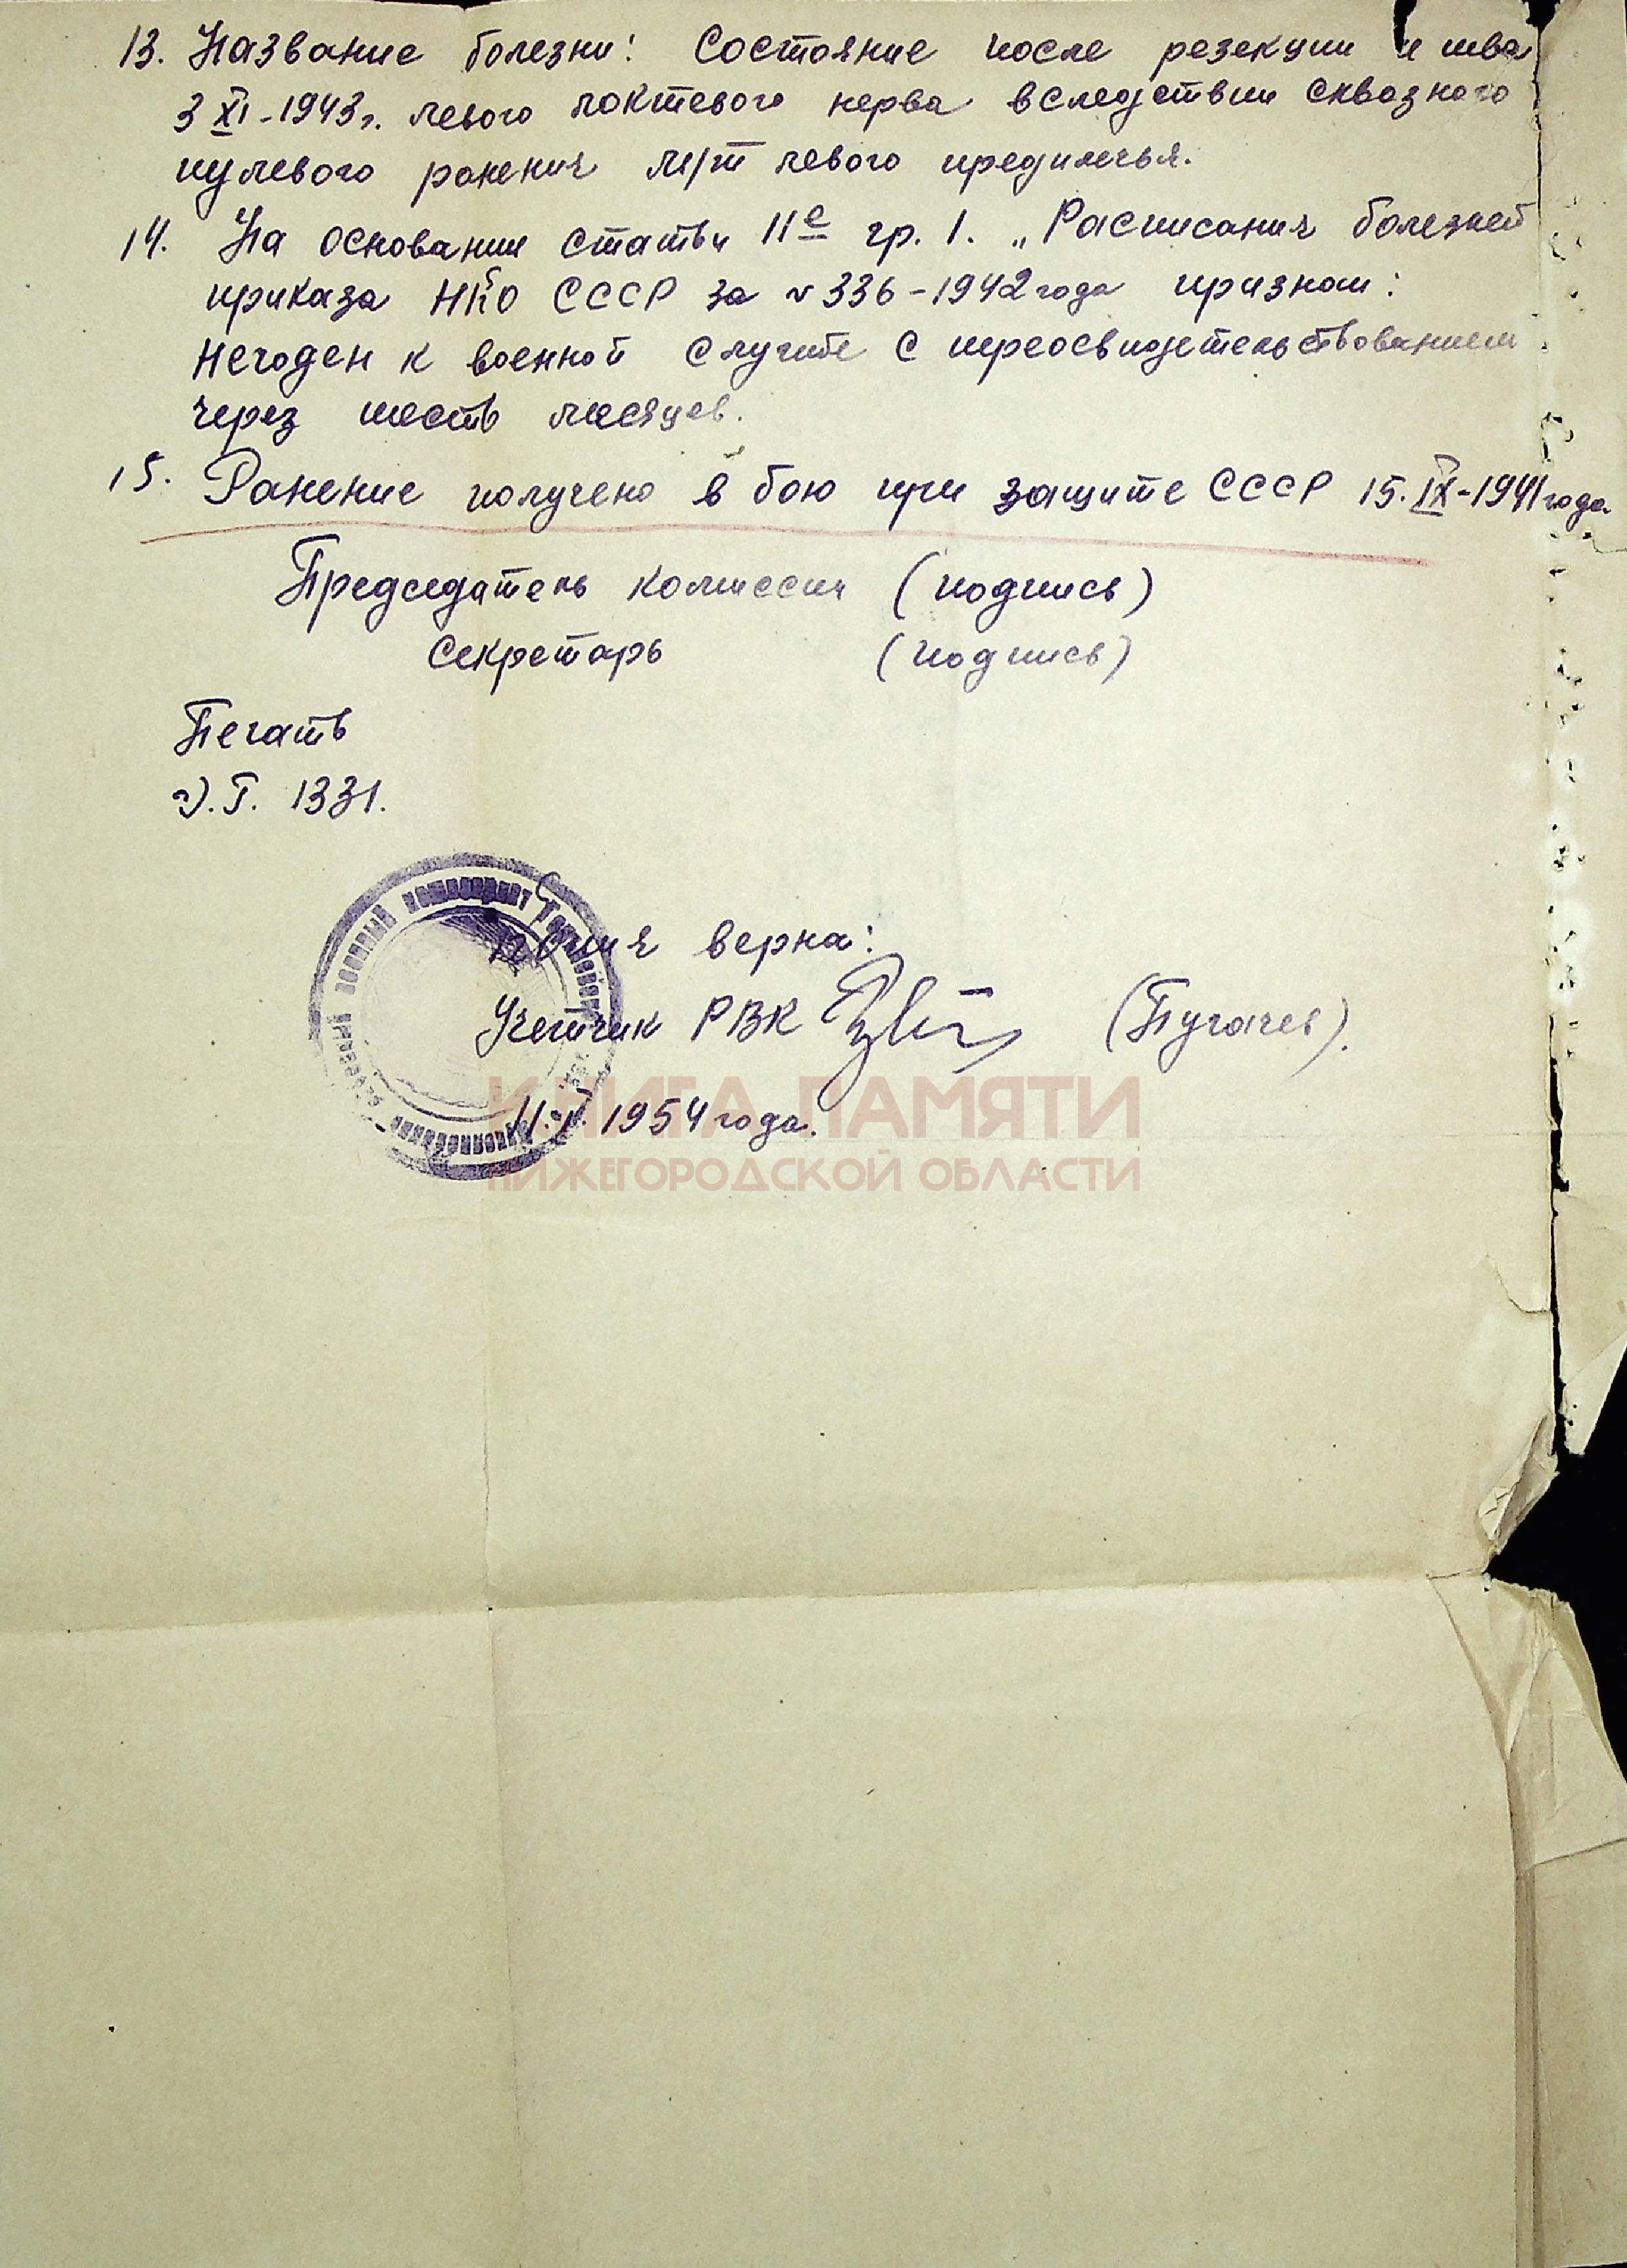 13. Название болезни: Состояние после резекции и шва
3 XI-1943г. левого локтевого нерва вследствии сквозного
пулевого ранения м/т левого предплечья.
14. На основании статьи 11е гр. 1. „Расписания болезней
приказа НКО СССР за № 336-1942 года признан:
Негоден к военной службе с переосвидетельствованием
через шесть месяцев.
15. Ранение получено в бою при защите СССР 15.IX-1941 года
Председатель комиссии (подпись)
Секретарь (подпись)
Печать
Э.Г. 1331.
военный комиссариат
Копия верна:
Учетчик РВК (Пугачев).
1954 года.
КНИГА ПАМЯТИ
НИЖЕГОРОДСКОЙ ОБЛАСТИ